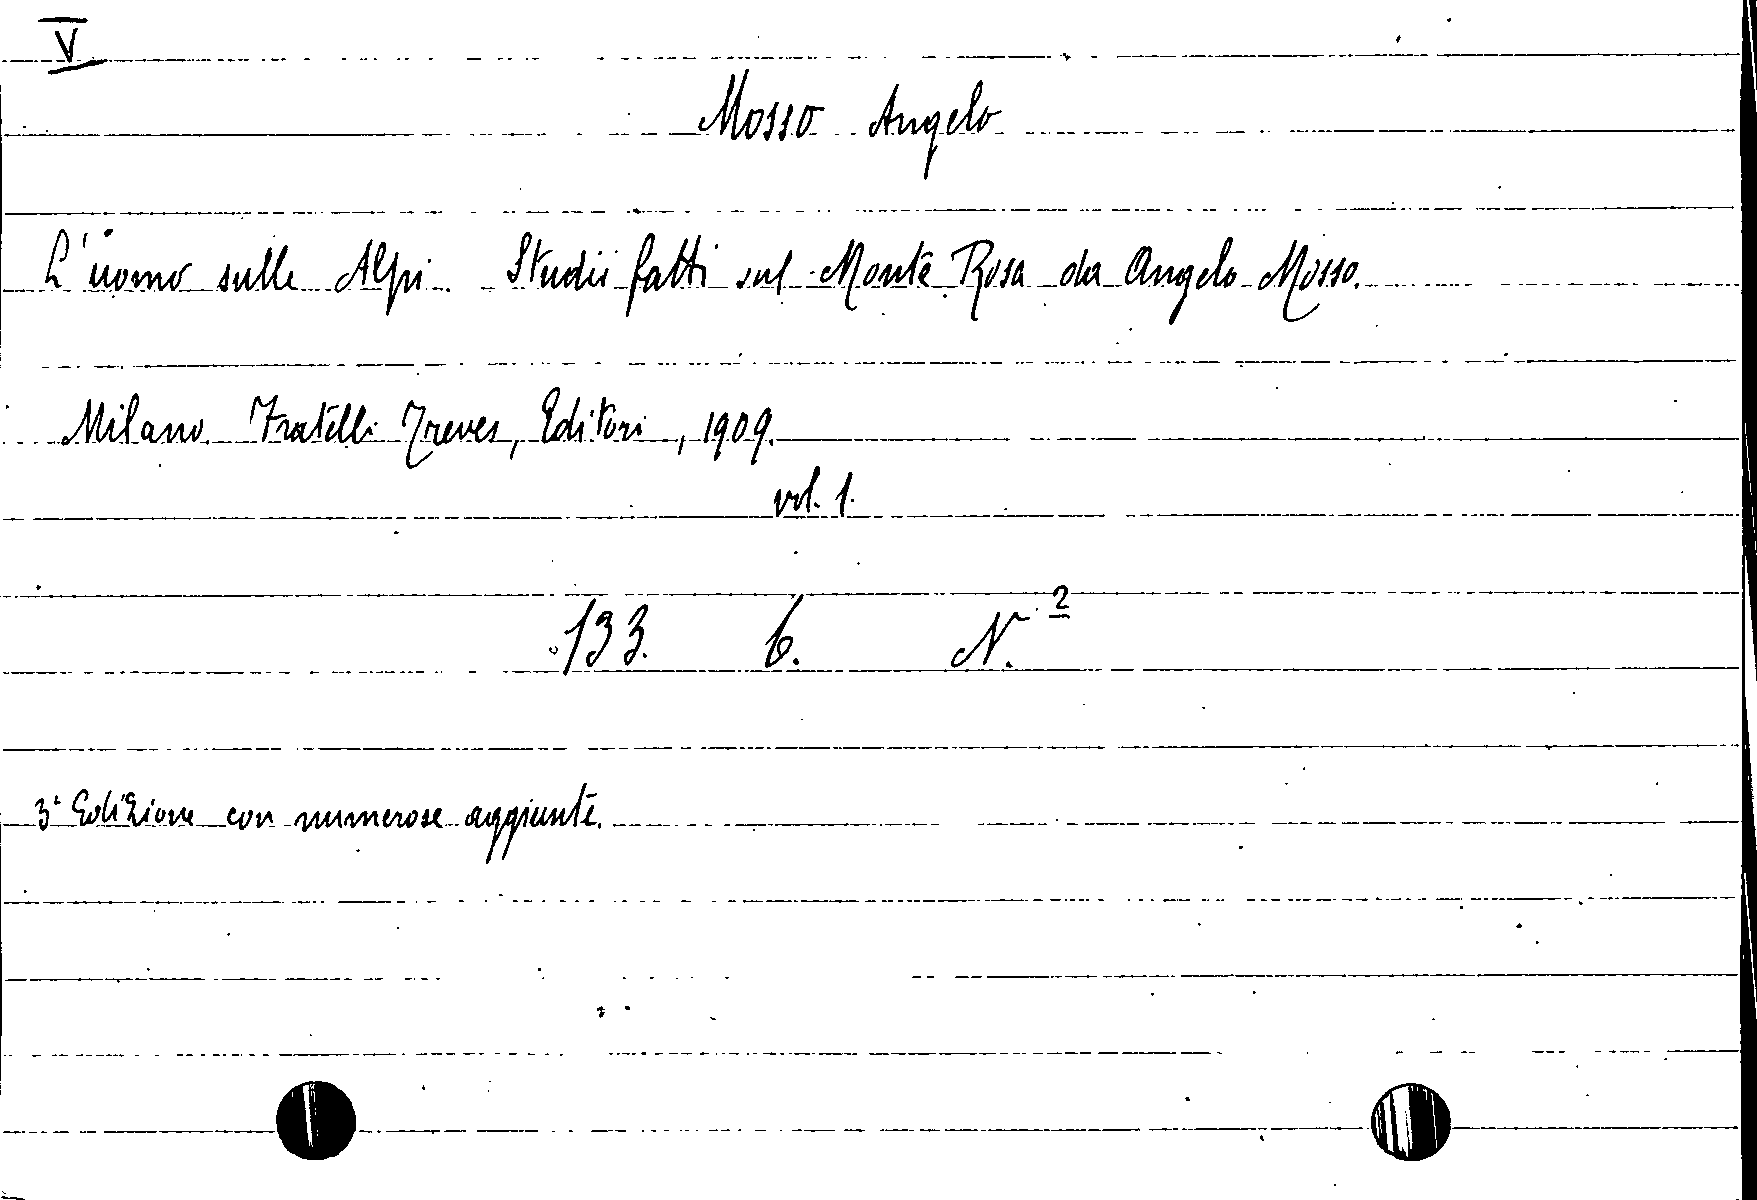 V
Mosso Angelo
L'uomo sulle Alpi. Studii fatti sul Monte Rosa da Angelo Mosso.
Milano. Fratelli Treves, Editori, 1909.
vol. 1.
133. 6. N. 2
3ª Edizione con numerose aggiunte.